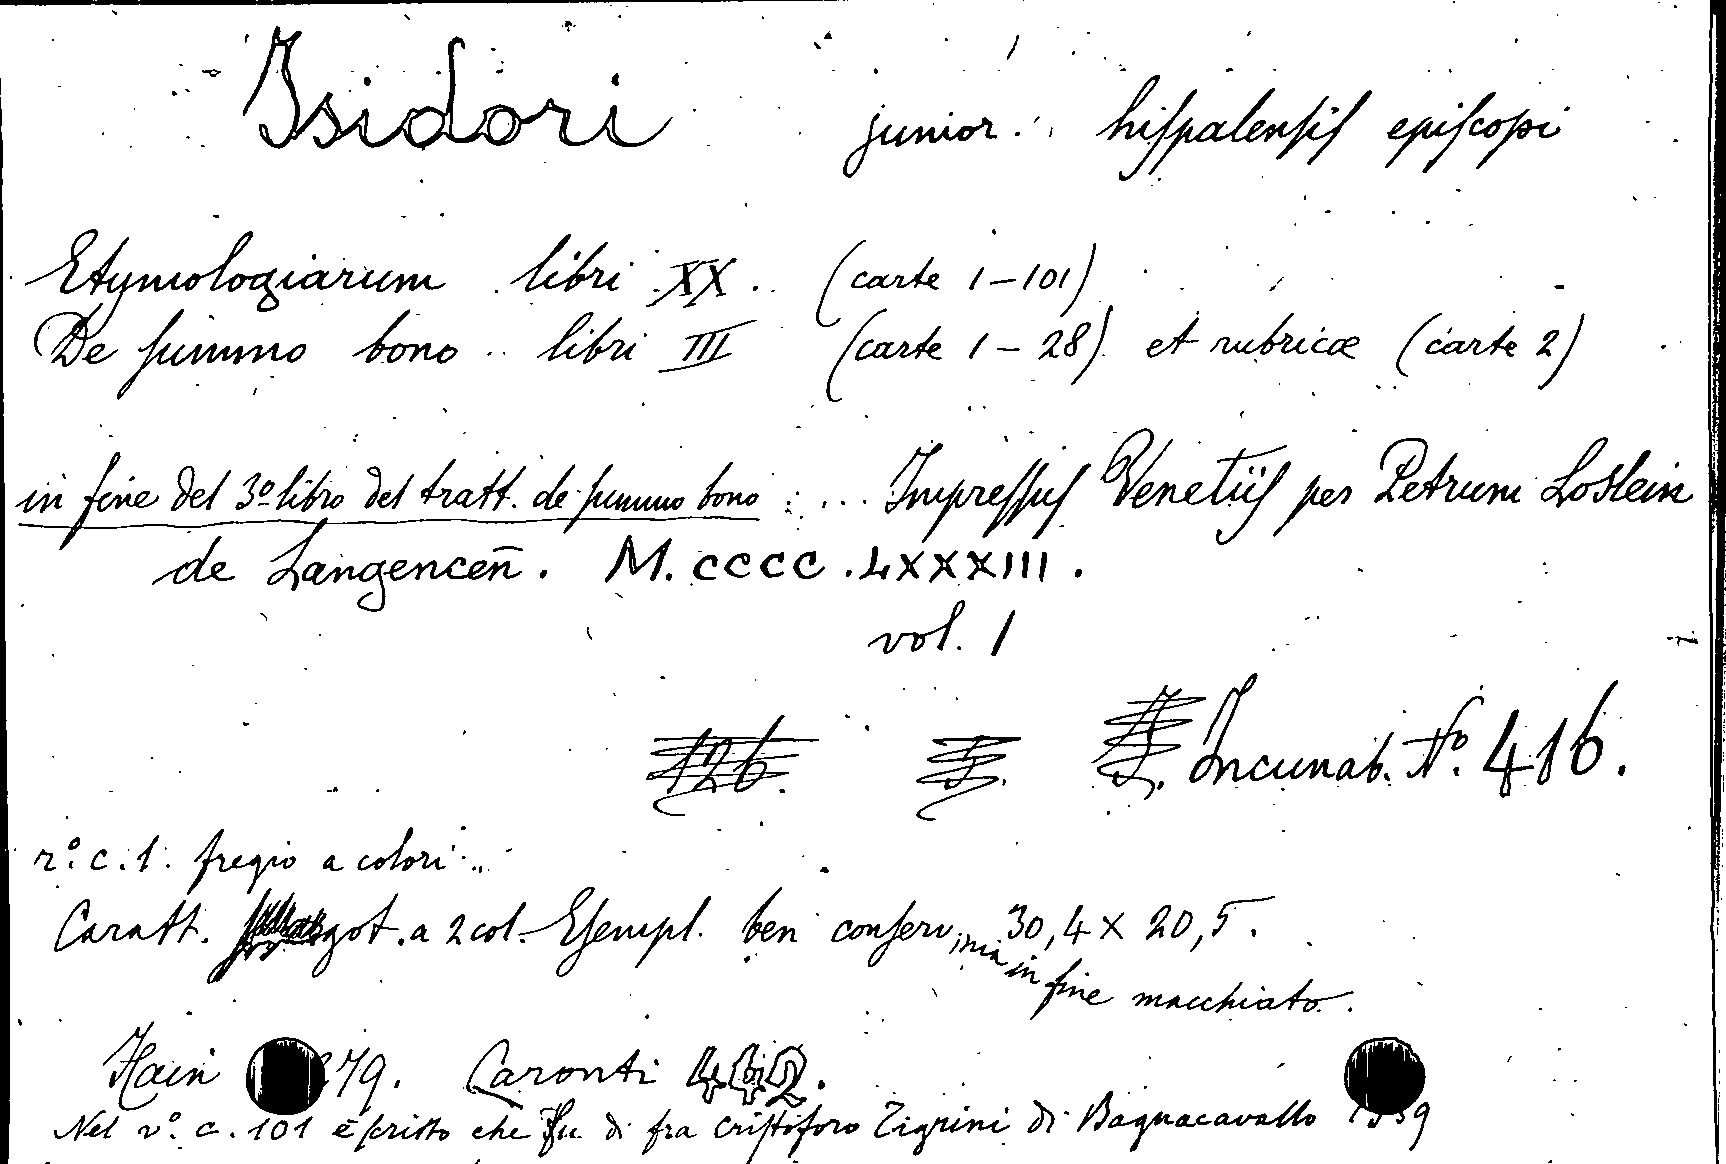 Isidori junior. hispalensis episcopi
Etymologiarum libri XX. (carte 1-101)
De summo bono libri III (carte 1-28) et rubricæ (carte 2)
in fine del 3º libro del tratt. de summo bono : ... Impressus Venetiis per Petrum Loslein
de Langenceñ. M. CCCC. LXXXIII.
vol. 1
126. Incunab. Nº. 416.
rº. c. 1. fregio a colori
Caratt. got. a 2 col. Esempl. ben conserv. 30,4 x 20,5.
ma in fine macchiato.
Hain 79. Caronti 442.
Nel vº. c. 101 è scritto che fu di fra Cristoforo Tigrini di Bagnacavallo